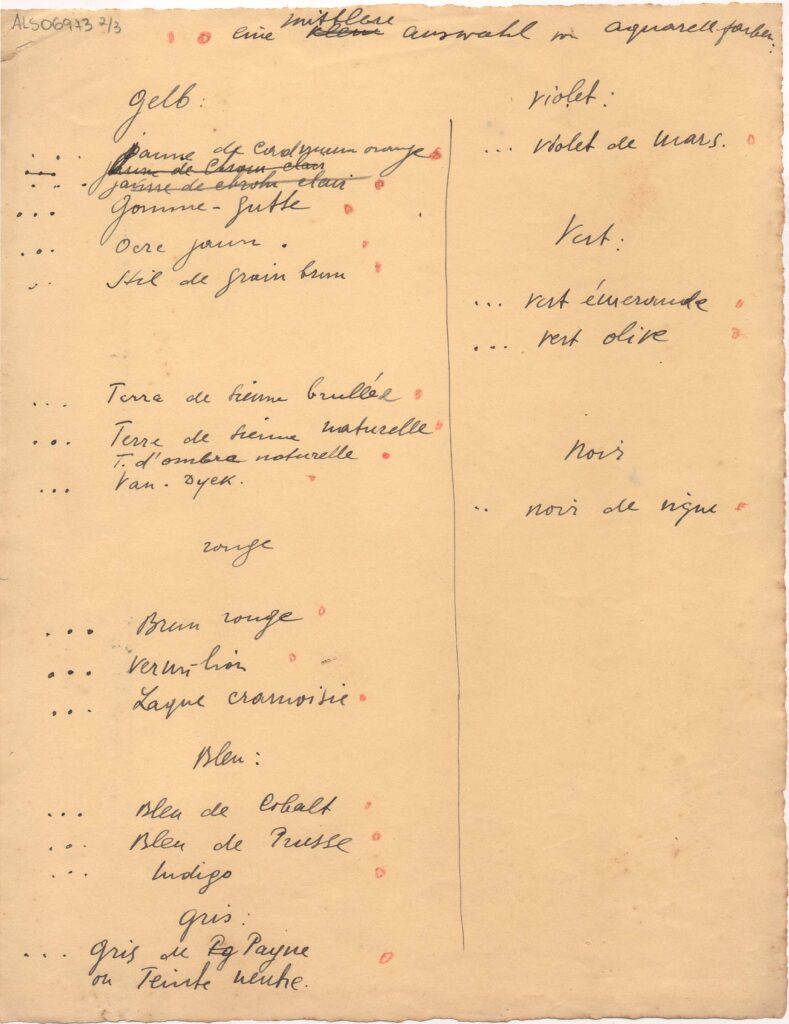 ALS06973 2/3
mittlere
eine kleine auswahl von aquarellfarben.
Gelb:
... jaune de cardmium orange
... jaune de chrom clair
... jaune de chrom clair
... Gomme-Gutte
... Ocre jaun.
... Stil de grain brun
... Terra de sienne brullée
... Terre de sienne naturelle
T. d'ombra naturelle
... Van-Dyck.
rouge
... Brun rouge
... Vermilion
... Laque cramoisie
Bleu:
... Bleu de Cobalt
... Bleu de Prusse
... Indigo
Gris:
... Gris de Pg Payne
ou Teinte neutre.
violet:
... violet de mars.
Vert:
... vert émeraude
... vert olive
Noir
.. noir de vigne